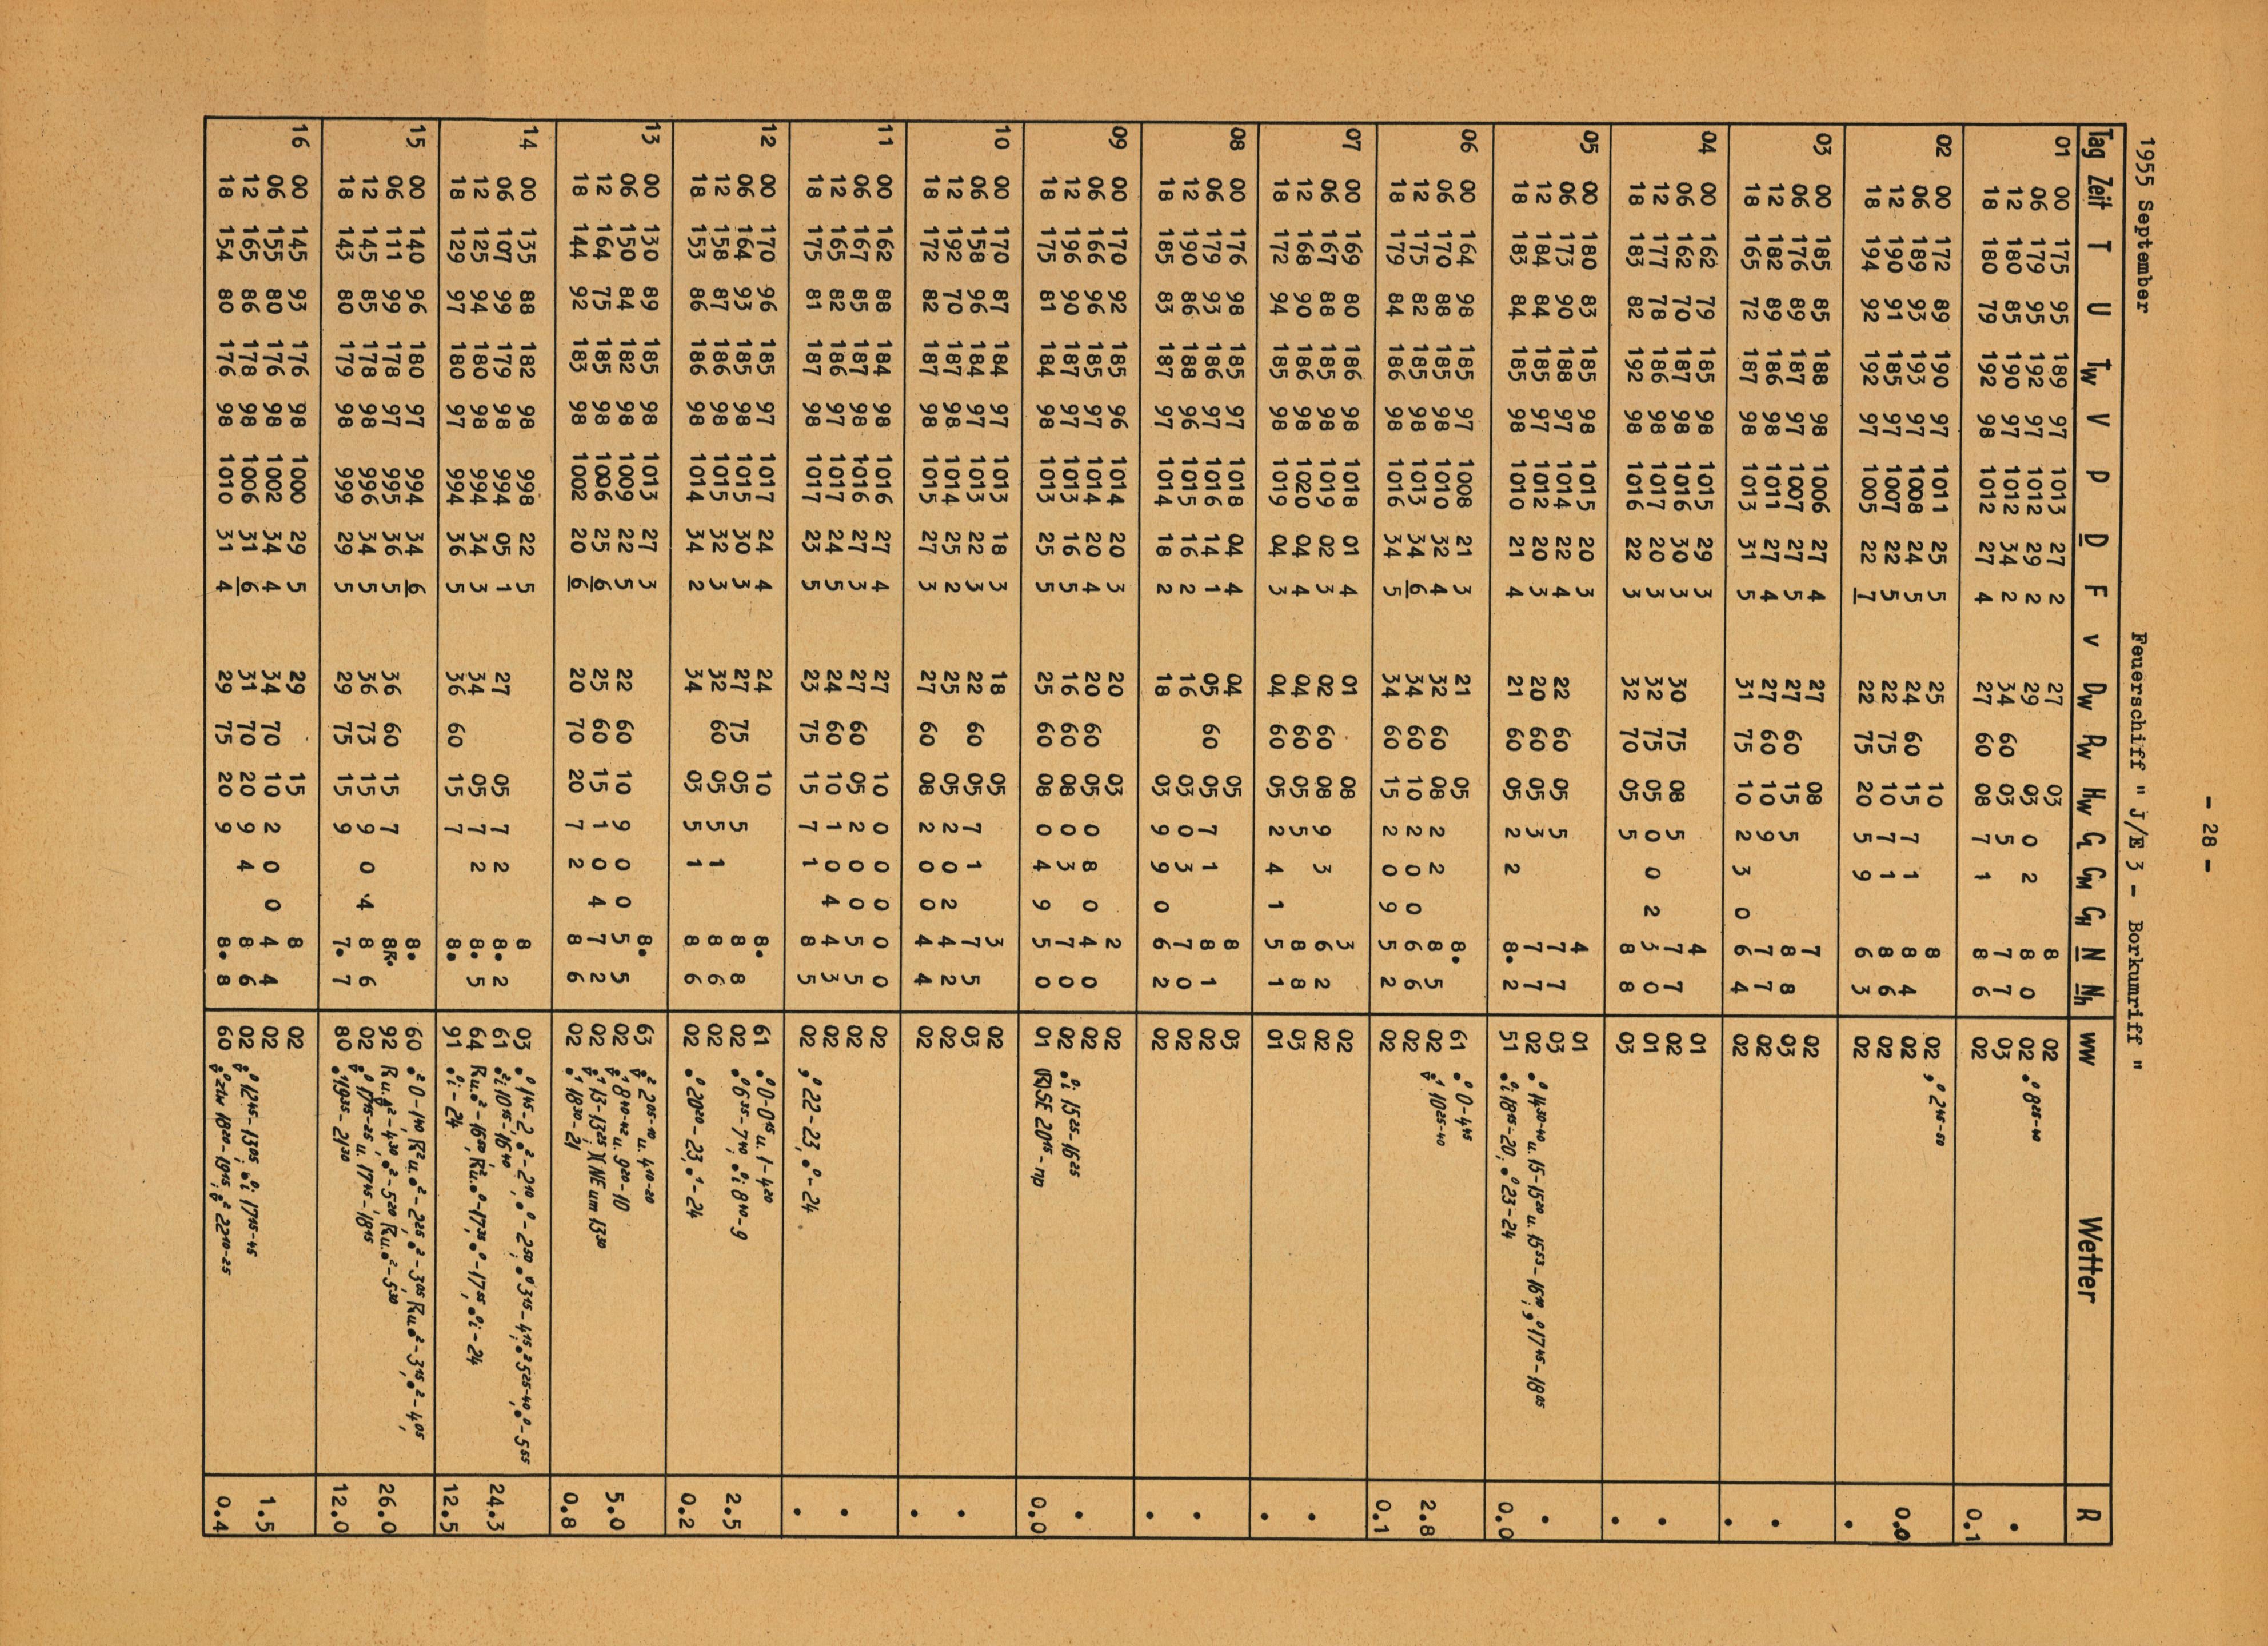 - 28 -
1955 September Feuerschiff " J/E 3 - Borkumriff "
Tag Zeit T U Tw V P D F v Dw Pw Hw CL CM CH N Nh ww Wetter R
01 00 175 95 189 97 1013 27 2 27 03 8 02
06 179 95 192 97 1012 29 2 29 03 0 2 8 0 02 •⁰ 8²⁵⁻⁴⁰ •
12 180 85 190 97 1012 34 2 34 60 03 5 7 7 03
18 180 79 192 98 1012 27 4 27 60 08 7 1 8 6 02 0.1
02 00 172 89 190 97 1011 25 5 25 10 8 02 ,⁰ 2⁴⁵⁻⁵⁰
06 189 93 193 97 1008 24 5 24 60 15 7 1 8 4 02 0.0
12 190 91 185 97 1007 22 5 22 75 10 7 1 8 6 02
18 194 92 192 97 1005 22 7 22 75 20 5 9 6 3 02 •
03 00 185 85 188 98 1006 27 4 27 08 7 02
06 176 89 187 97 1007 27 5 27 60 15 5 8 8 03 •
12 182 89 186 98 1011 27 4 27 60 10 9 7 7 02
18 165 72 187 98 1013 31 5 31 75 10 2 3 0 6 4 02 •
04 00 162 79 185 98 1015 29 3 4 01
06 162 70 187 98 1016 30 3 30 75 08 5 7 7 02 •
12 177 78 186 98 1017 20 3 32 75 05 0 0 2 3 0 01
18 183 82 192 98 1016 22 3 32 70 05 5 8 8 03 •
05 00 180 83 185 98 1015 20 3 4 01
06 173 90 188 97 1014 22 4 22 60 05 5 7 7 03 •
12 184 84 185 97 1012 20 3 20 60 05 3 7 7 02 •⁰ 14³⁰⁻⁴⁰ u. 15-15²⁰ u. 15⁵³-16¹⁰; ,⁰ 17⁴⁵-18⁰⁵
18 183 84 185 98 1010 21 4 21 60 05 2 2 8• 2 51 •⁰i 18⁴⁵-20, •⁰ 23-24 0.0
06 00 164 98 185 97 1008 21 3 21 05 8• 61 •⁰ 0-4⁴⁵
06 170 88 185 98 1010 32 4 32 60 08 2 2 8 5 02 2.8
12 175 82 185 98 1013 34 6 34 60 10 2 0 0 6 6 02 10²⁵⁻⁴⁰
18 179 84 186 98 1016 34 5 34 60 15 2 0 9 5 2 02 0.1
07 00 169 80 186 98 1018 01 4 01 08 3 02
06 167 88 185 98 1019 02 3 02 60 08 9 3 6 2 02 •
12 168 90 186 98 1020 04 4 04 60 05 5 8 8 03
18 172 94 185 98 1019 04 3 04 60 05 2 4 1 5 1 01 •
08 00 176 98 185 97 1018 04 4 04 05 8 03
06 179 93 186 97 1016 14 1 05 60 05 7 1 8 1 02 •
12 190 86 188 96 1015 16 2 16 03 0 3 7 0 02
18 185 83 187 97 1014 18 2 18 03 9 9 0 6 2 02 •
09 00 170 92 185 96 1014 20 3 20 03 2 02
06 166 96 185 97 1014 20 4 20 60 05 0 8 0 4 0 02 •
12 196 90 187 97 1013 16 5 16 60 08 0 3 7 0 02 •⁰i 15²⁵-16²⁵
18 175 81 184 98 1013 25 5 25 60 08 0 4 9 5 0 01 (R) SE 20⁴⁵-np 0.0
10 00 170 87 184 97 1013 18 3 18 05 3 02
06 158 96 184 97 1013 22 3 22 60 05 7 1 7 5 03 •
12 192 70 187 98 1014 25 2 25 05 2 0 2 4 2 02
18 172 82 187 98 1015 27 3 27 60 08 2 0 0 4 4 02 •
11 00 162 88 184 98 1016 27 4 27 10 0 0 0 0 0 02
06 167 85 187 98 1016 27 3 27 60 05 2 0 0 5 5 02 •
12 165 82 186 97 1017 24 5 24 60 10 1 0 4 4 3 02
18 175 81 187 98 1017 23 5 23 75 15 7 1 8 5 02 ,⁰ 22-23, •⁰-24 •
12 00 170 96 185 97 1017 24 4 24 10 8• 61 •⁰ 0-0⁴⁵ u. 1-4²⁰
06 164 93 185 98 1015 30 3 27 75 05 5 8 8 02 •⁰ 6³⁵-7⁴⁰, •⁰i 8⁴⁰-9 2.5
12 158 87 186 98 1015 32 3 32 60 05 5 1 8 6 02
18 153 86 186 98 1014 34 2 34 03 5 1 8 6 02 •⁰ 20²⁰-23, •¹-24 0.2
13 00 130 89 185 98 1013 27 3 8• 63 2⁰⁵⁻¹⁰ u. 4¹⁰⁻²⁰
06 150 84 182 98 1009 22 5 22 60 10 9 0 0 5 5 02 8⁴⁰⁻⁴² u. 9²⁰-10 5.0
12 164 75 185 98 1006 25 6 25 60 15 1 0 4 7 2 02 13-13²⁵; )( NE um 13³⁰
18 144 92 183 98 1002 20 6 20 70 20 7 2 8 6 02 •¹ 18³⁰-21 0.8
14 00 135 88 182 98 998 22 5 8 03 •⁰ 1⁴⁵-2, •²-2¹⁰, •⁰-2⁵⁰, •⁰ 3¹⁵-4¹⁵, •² 5²⁵⁻⁴⁰, •⁰-5⁵⁵
06 107 99 179 98 994 05 1 27 05 7 2 8• 2 61 •²i 10¹⁵-16⁴⁰ 24.3
12 125 94 180 98 994 34 3 34 05 7 2 8• 5 64 R u. •²-16⁵⁰, R² u. •⁰-17³⁵, •⁰-17⁵⁵, •⁰i-24
18 129 97 180 97 994 36 5 36 60 15 7 8• 91 •⁰i-24 12.5
15 00 140 96 180 97 994 34 6 8• 60 •² 0-1⁴⁰ R² u. •²-2²⁵, •²-3⁰⁵ R u. •²-3⁴⁵, •²-4⁰⁵,
06 111 99 178 97 995 36 5 36 60 15 7 8R• 92 R u. -4³⁰, •²-5²⁰ R u. •²-5³⁰ 26.0
12 145 85 178 98 996 34 5 36 73 15 9 0 4 8 6 02 u. 17⁴⁵-18⁴⁵
18 143 80 179 98 999 29 5 29 75 15 9 7• 7 80 19³⁵-21³⁰ 12.0
16 00 145 93 176 98 1000 29 5 29 15 8 02
06 155 80 176 98 1002 34 4 34 70 10 2 0 0 4 4 02 1.5
12 165 86 178 98 1006 31 6 31 70 20 9 4 8 6 02 12⁴⁵-13⁰⁵, •⁰i 17¹⁵⁻⁴⁵
18 154 80 176 98 1010 31 4 29 75 20 9 8• 8 60 zw 18²⁰-19⁴⁵, 22¹⁰⁻²⁵ 0.4